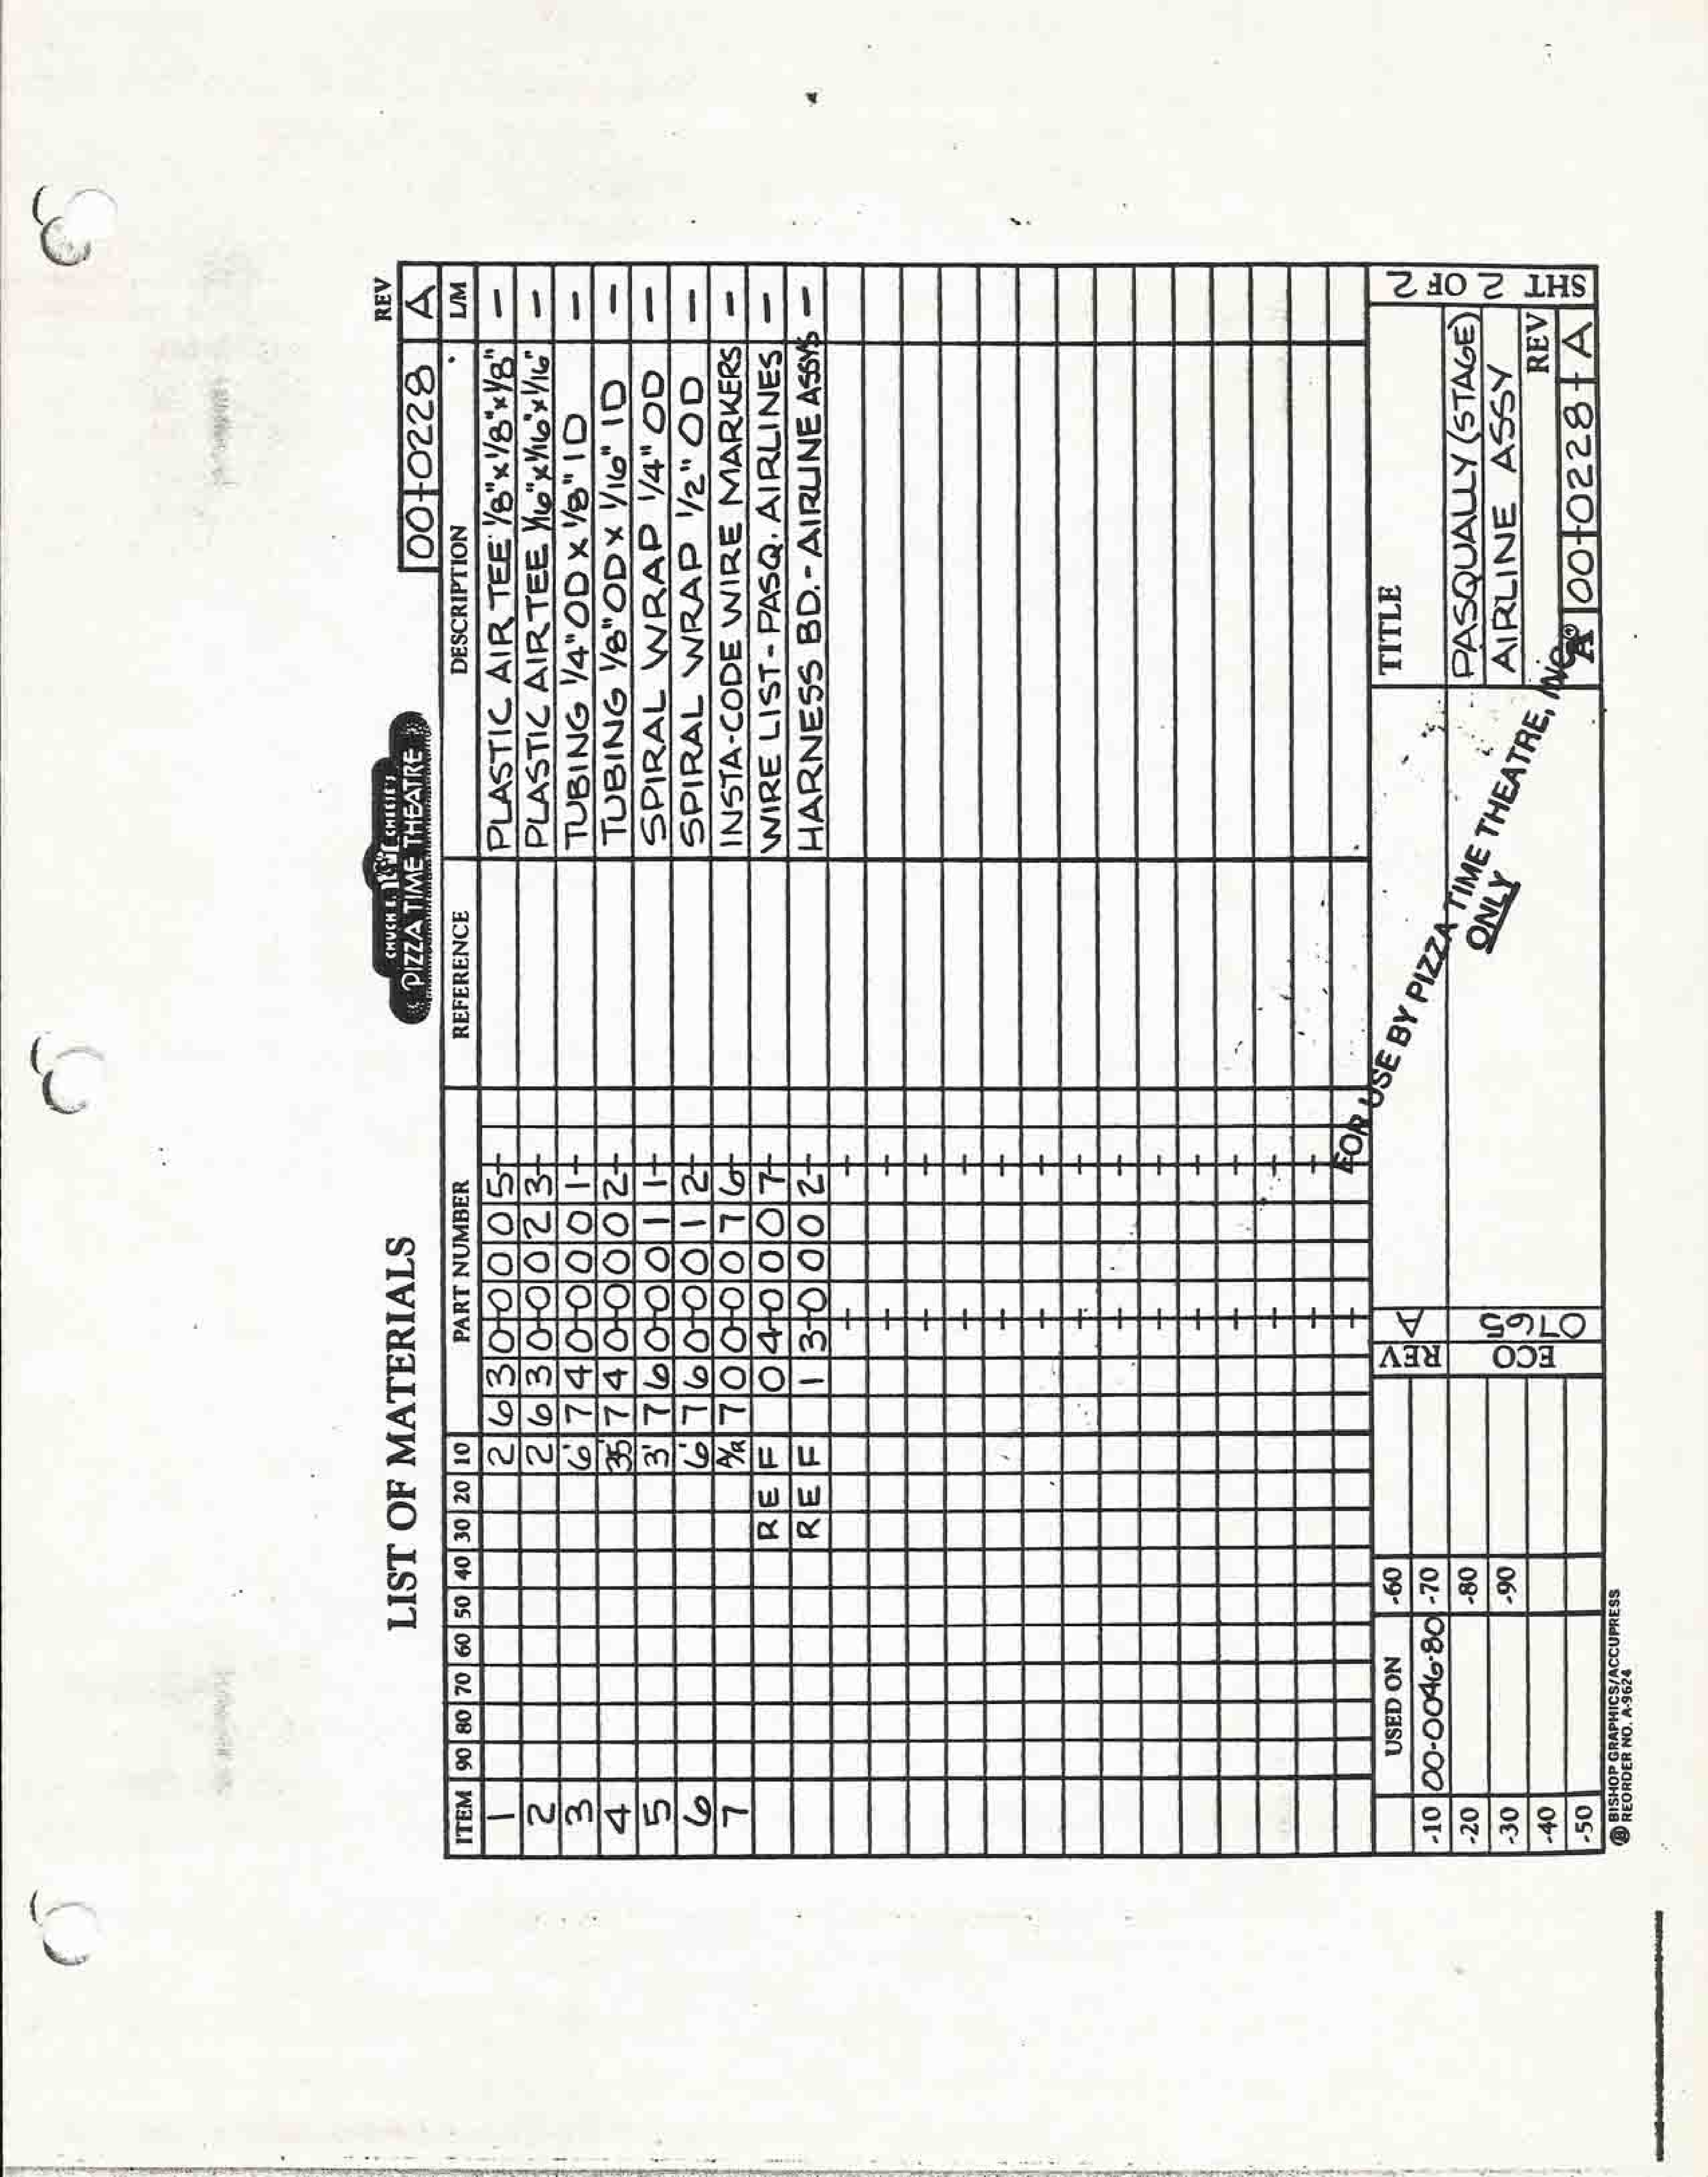 LIST OF MATERIALS
CHUCK E. CHEESE'S
PIZZA TIME THEATRE
REV
00-0228 A
ITEM 90 80 70 60 50 40 30 20 10 PART NUMBER REFERENCE DESCRIPTION L/M
1 2 630-0005- PLASTIC AIR TEE 1/8"x1/8"x1/8" -
2 2 630-0023- PLASTIC AIRTEE 1/16"x1/16"x1/16" -
3 6' 740-0001- TUBING 1/4"OD x 1/8"ID -
4 35' 740-0002- TUBING 1/8"OD x 1/16"ID -
5 3' 760-0011- SPIRAL WRAP 1/4"OD -
6 6' 760-0012- SPIRAL WRAP 1/2"OD -
7 A/R 700-0076- INSTA-CODE WIRE MARKERS -
REF 04-0007- WIRE LIST-PASQ. AIRLINES -
REF 13-0002- HARNESS BD.-AIRLINE ASSYS -
FOR USE BY PIZZA TIME THEATRE, INC.
ONLY
USED ON
-10 00-0046-80
-20
-30
-40
-50
-60
-70
-80
-90
REV A
ECO 0765
TITLE
PASQUALLY (STAGE)
AIRLINE ASSY
REV
A 00-0228- A
SHT 2 OF 2
BISHOP GRAPHICS/ACCUPRESS
REORDER NO. A-9624